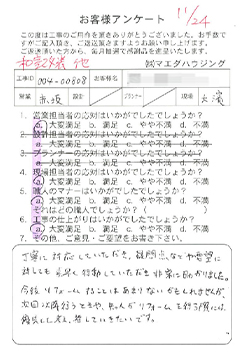 お客様アンケート 11/24
この度は工事のご用命を賜りありがとうございました。お手数で
すがご記入頂き、ご返送賜りますようお願い申し上げます。
ご返送いただいた方から、毎月抽選で感謝品を進呈いたします。
和室改修 他 ㈱マエダハウジング
工事ID 004-00808 お客様名
営業 赤坂 設計 プランナー 現場
1. 営業担当者の応対はいかがでしたでしょうか?
a. 大変満足 b. 満足 c. やや不満 d. 不満
2. 設計担当者の応対はいかがでしたでしょうか?
a. 大変満足 b. 満足 c. やや不満 d. 不満
3. プランナーの応対はいかがでしたでしょうか?
a. 大変満足 b. 満足 c. やや不満 d. 不満
4. 現場担当者の応対はいかがでしたでしょうか?
a. 大変満足 b. 満足 c. やや不満 d. 不満
5. 職人のマナーはいかがでしたでしょうか?
a. 大変満足 b. 満足 c. やや不満 d. 不満
それはどの職人でしょうか? ( )
6. 工事の仕上がりはいかがでしたでしょうか?
a. 大変満足 b. 満足 c. やや不満 d. 不満
7. その他、ご意見・ご要望をお書き下さい。
丁寧に対応していただき、疑問点などや要望に
対しても 行動していただき 非常に助かりました。
今後 リフォームすることはあまりないかもしれませんが
次回以降行うときや、友人がリフォームを行う際には、
していきたいです。